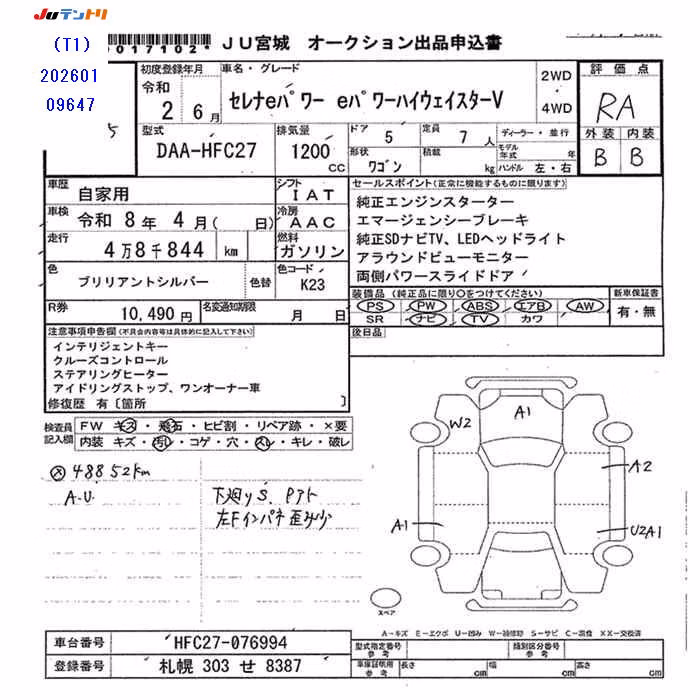 JUテントリ
(T1)
202601
09647
0017102*
JU宮城 オークション出品申込書
初度登録年月 車名・グレード 2WD 評価点
令和 2年 6月 セレナeパワー eパワーハイウェイスターV 4WD RA
型式 排気量 ドア 5 定員 7人 ディーラー・並行 外装 内装
DAA-HFC27 1200CC 形状 ワゴン 積載 kg モデル年式 年 ハンドル 左・右 B B
車歴 自家用 シフト IAT セールスポイント(正常に機能するものに限ります)
車検 令和 8年 4月( 日) 冷房 AAC 純正エンジンスターター
エマージェンシーブレーキ
走行 4万8千844 km 燃料 ガソリン 純正SDナビTV、LEDヘッドライト
アラウンドビューモニター
色 ブリリアントシルバー 色替 色コード K23 両側パワースライドドア
R券 10,490円 名変通知期限 月 日 装備品(純正品に限り○をつけてください) 新車保証書
PS PW ABS エアB AW 有・無
SR ナビ TV カワ
注意事項申告欄(不具合内容等は具体的に記入して下さい) 後日品
インテリジェントキー
クルーズコントロール
ステアリングヒーター
アイドリングストップ、ワンオーナー車
修復歴 有〔箇所 〕
検査員記入欄 FW キズ・飛石・ヒビ割・リペア跡・×要
内装 キズ・汚れ・コゲ・穴・スレ・キレ・破レ
48852km
A.U. 下廻りS.Pアト
左Fインパネ歪み少
W2 A1
A2
A1 U2A1
スペア
A-キズ E-エクボ U-凹み W-補修跡 S-サビ C-腐食 XX-交換済
車台番号 HFC27-076994 型式指定番号 参考 類別区分番号 参考
登録番号 札幌 303 せ 8387 車庫証明用 参考 長さ cm 幅 cm 高さ cm